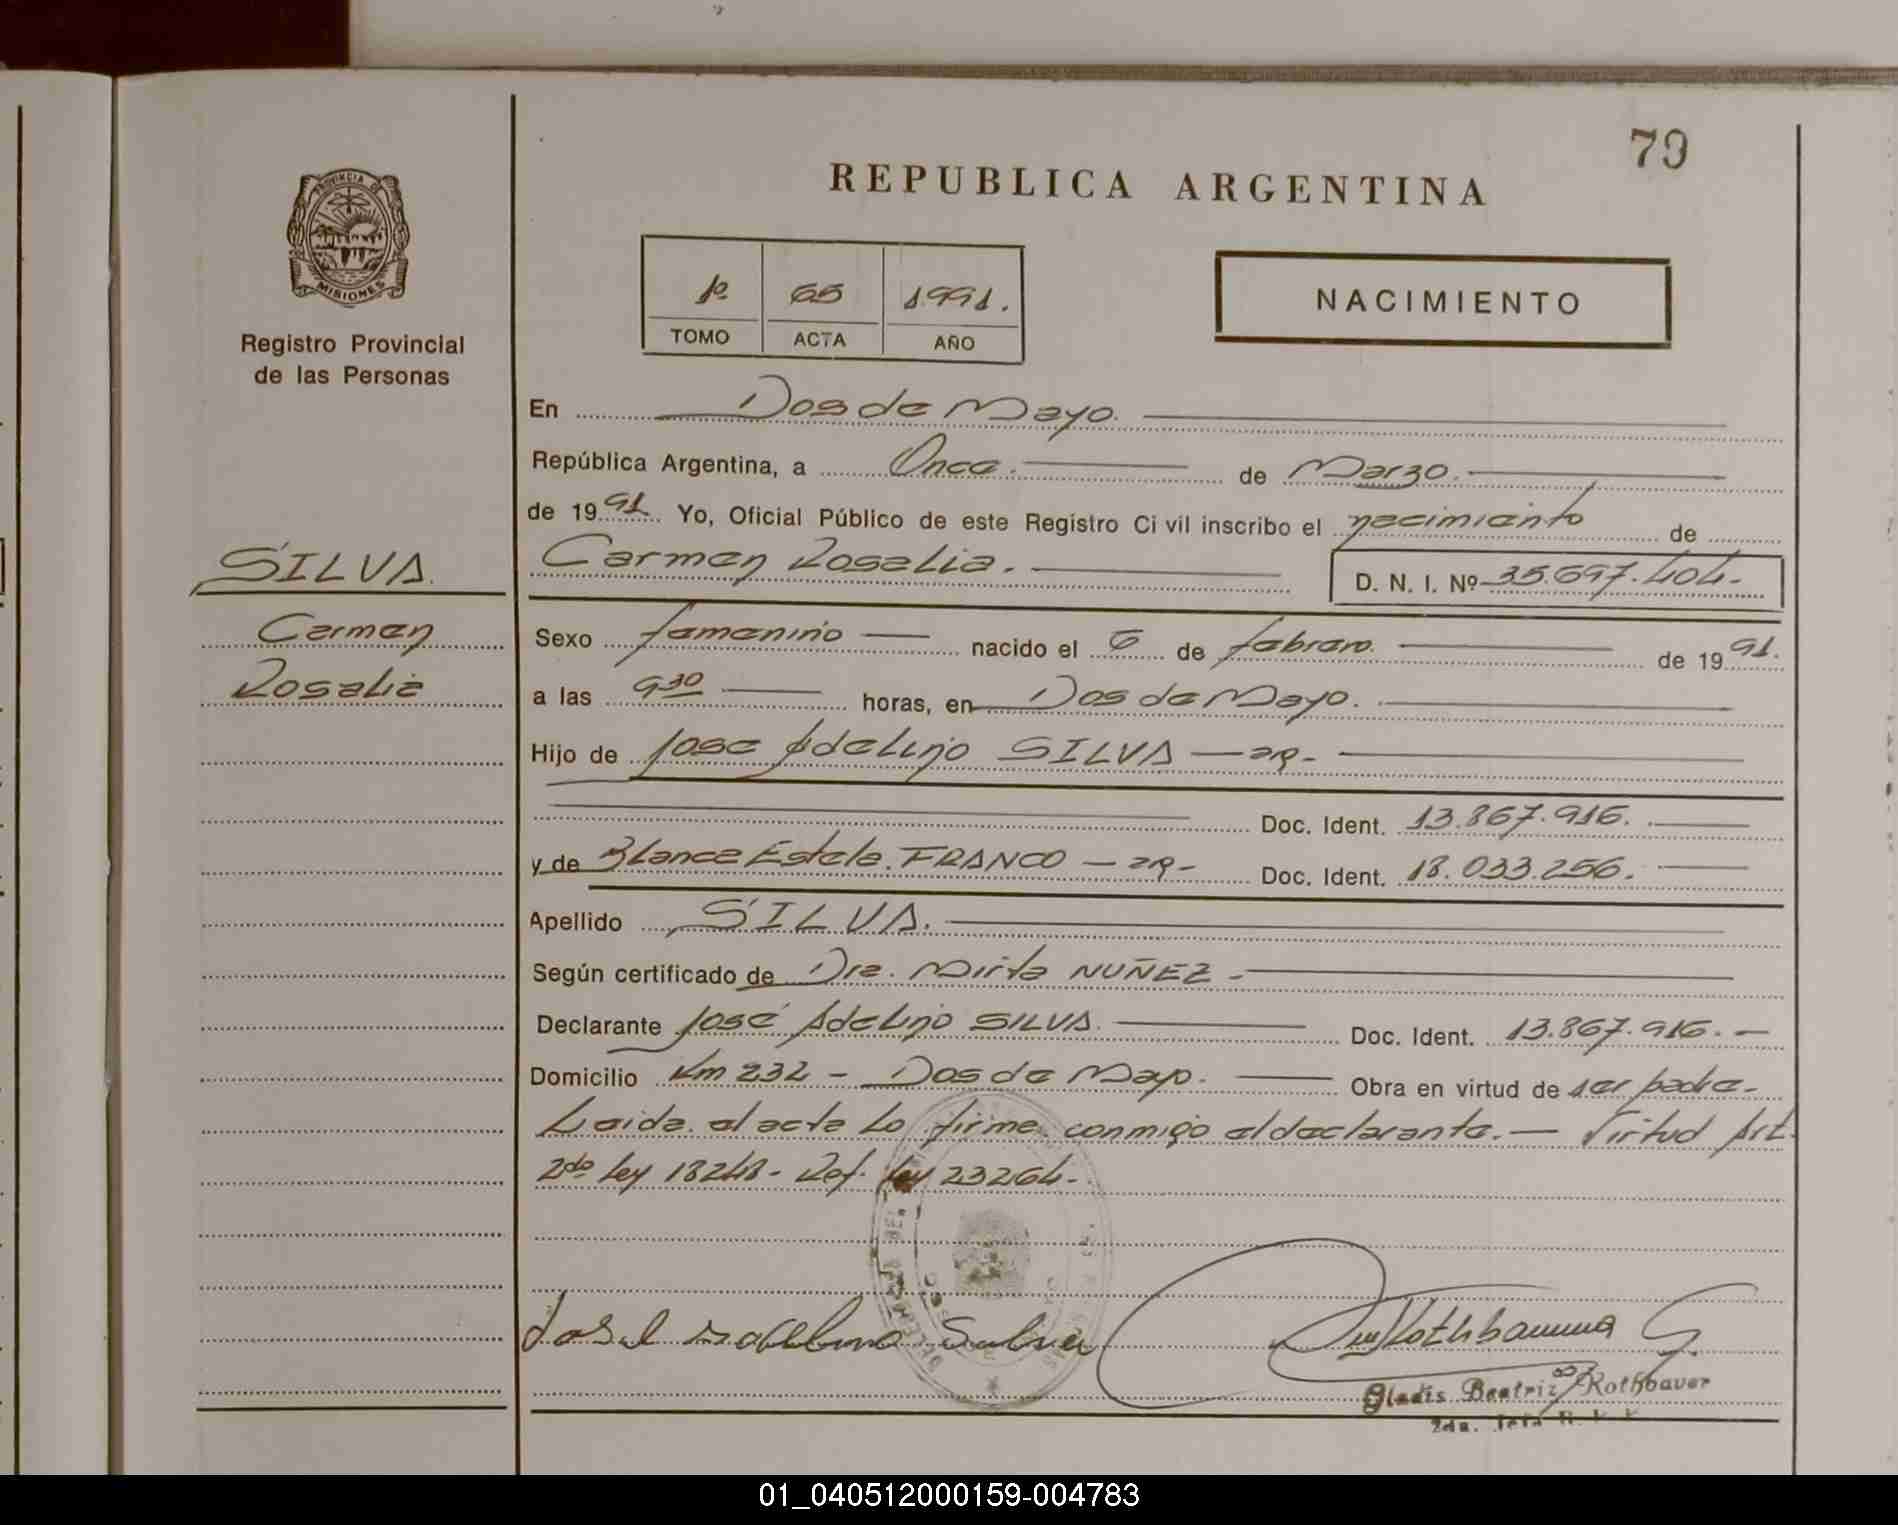 79
PROVINCIA DE
MISIONES
Registro Provincial
de las Personas
REPUBLICA ARGENTINA
1º 65 1991.
TOMO ACTA AÑO
NACIMIENTO
En Dos de Mayo.
República Argentina, a Once. de Marzo.
de 1991 Yo, Oficial Público de este Registro Civil inscribo el nacimiento de
Carmen Rosalia. D. N. I. Nº 35.697.404.-
SILVA.
Carmen
Rosalia
Sexo femenino nacido el 6 de febrero. de 1991.
a las 9 30 horas, en Dos de Mayo.
Hijo de Jose Adelino SILVA - aR-
Doc. Ident. 13.867.916.
y de Blanca Estela. FRANCO - aR- Doc. Ident. 18.033.256.
Apellido SILVA.
Según certificado de Dra. Mirta NUÑEZ -
Declarante José Adelino SILVA. Doc. Ident. 13.867.916.-
Domicilio Km 232 - Dos de Mayo. Obra en virtud de ser padre-
Leida el acta la firma conmigo el declarante. - Virtud Art.
2do Ley 18248- Ref. Ley 23264-
Silva
Gladis Beatriz Rothbauer
2da.
01_040512000159-004783